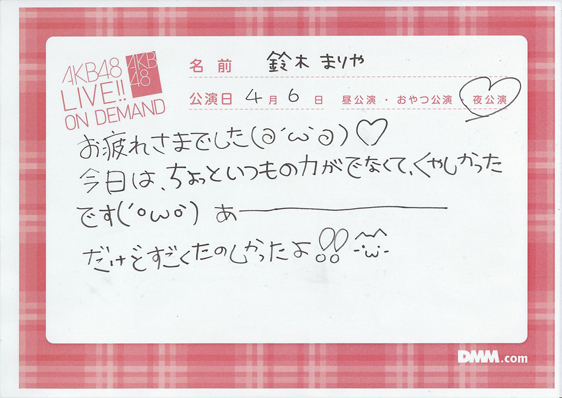 AKB48
LIVE!!
ON DEMAND
AKB
48
名前 鈴木まりや
公演日 4月6日 昼公演・おやつ公演・夜公演
お疲れさまでした(о´ω`о)♡
今日は、ちょっといつもの力がでなくて、くやしかった
です(´°ω°`) あ――――――
だけどすごくたのしかったよ!! ^ω^
DMM.com